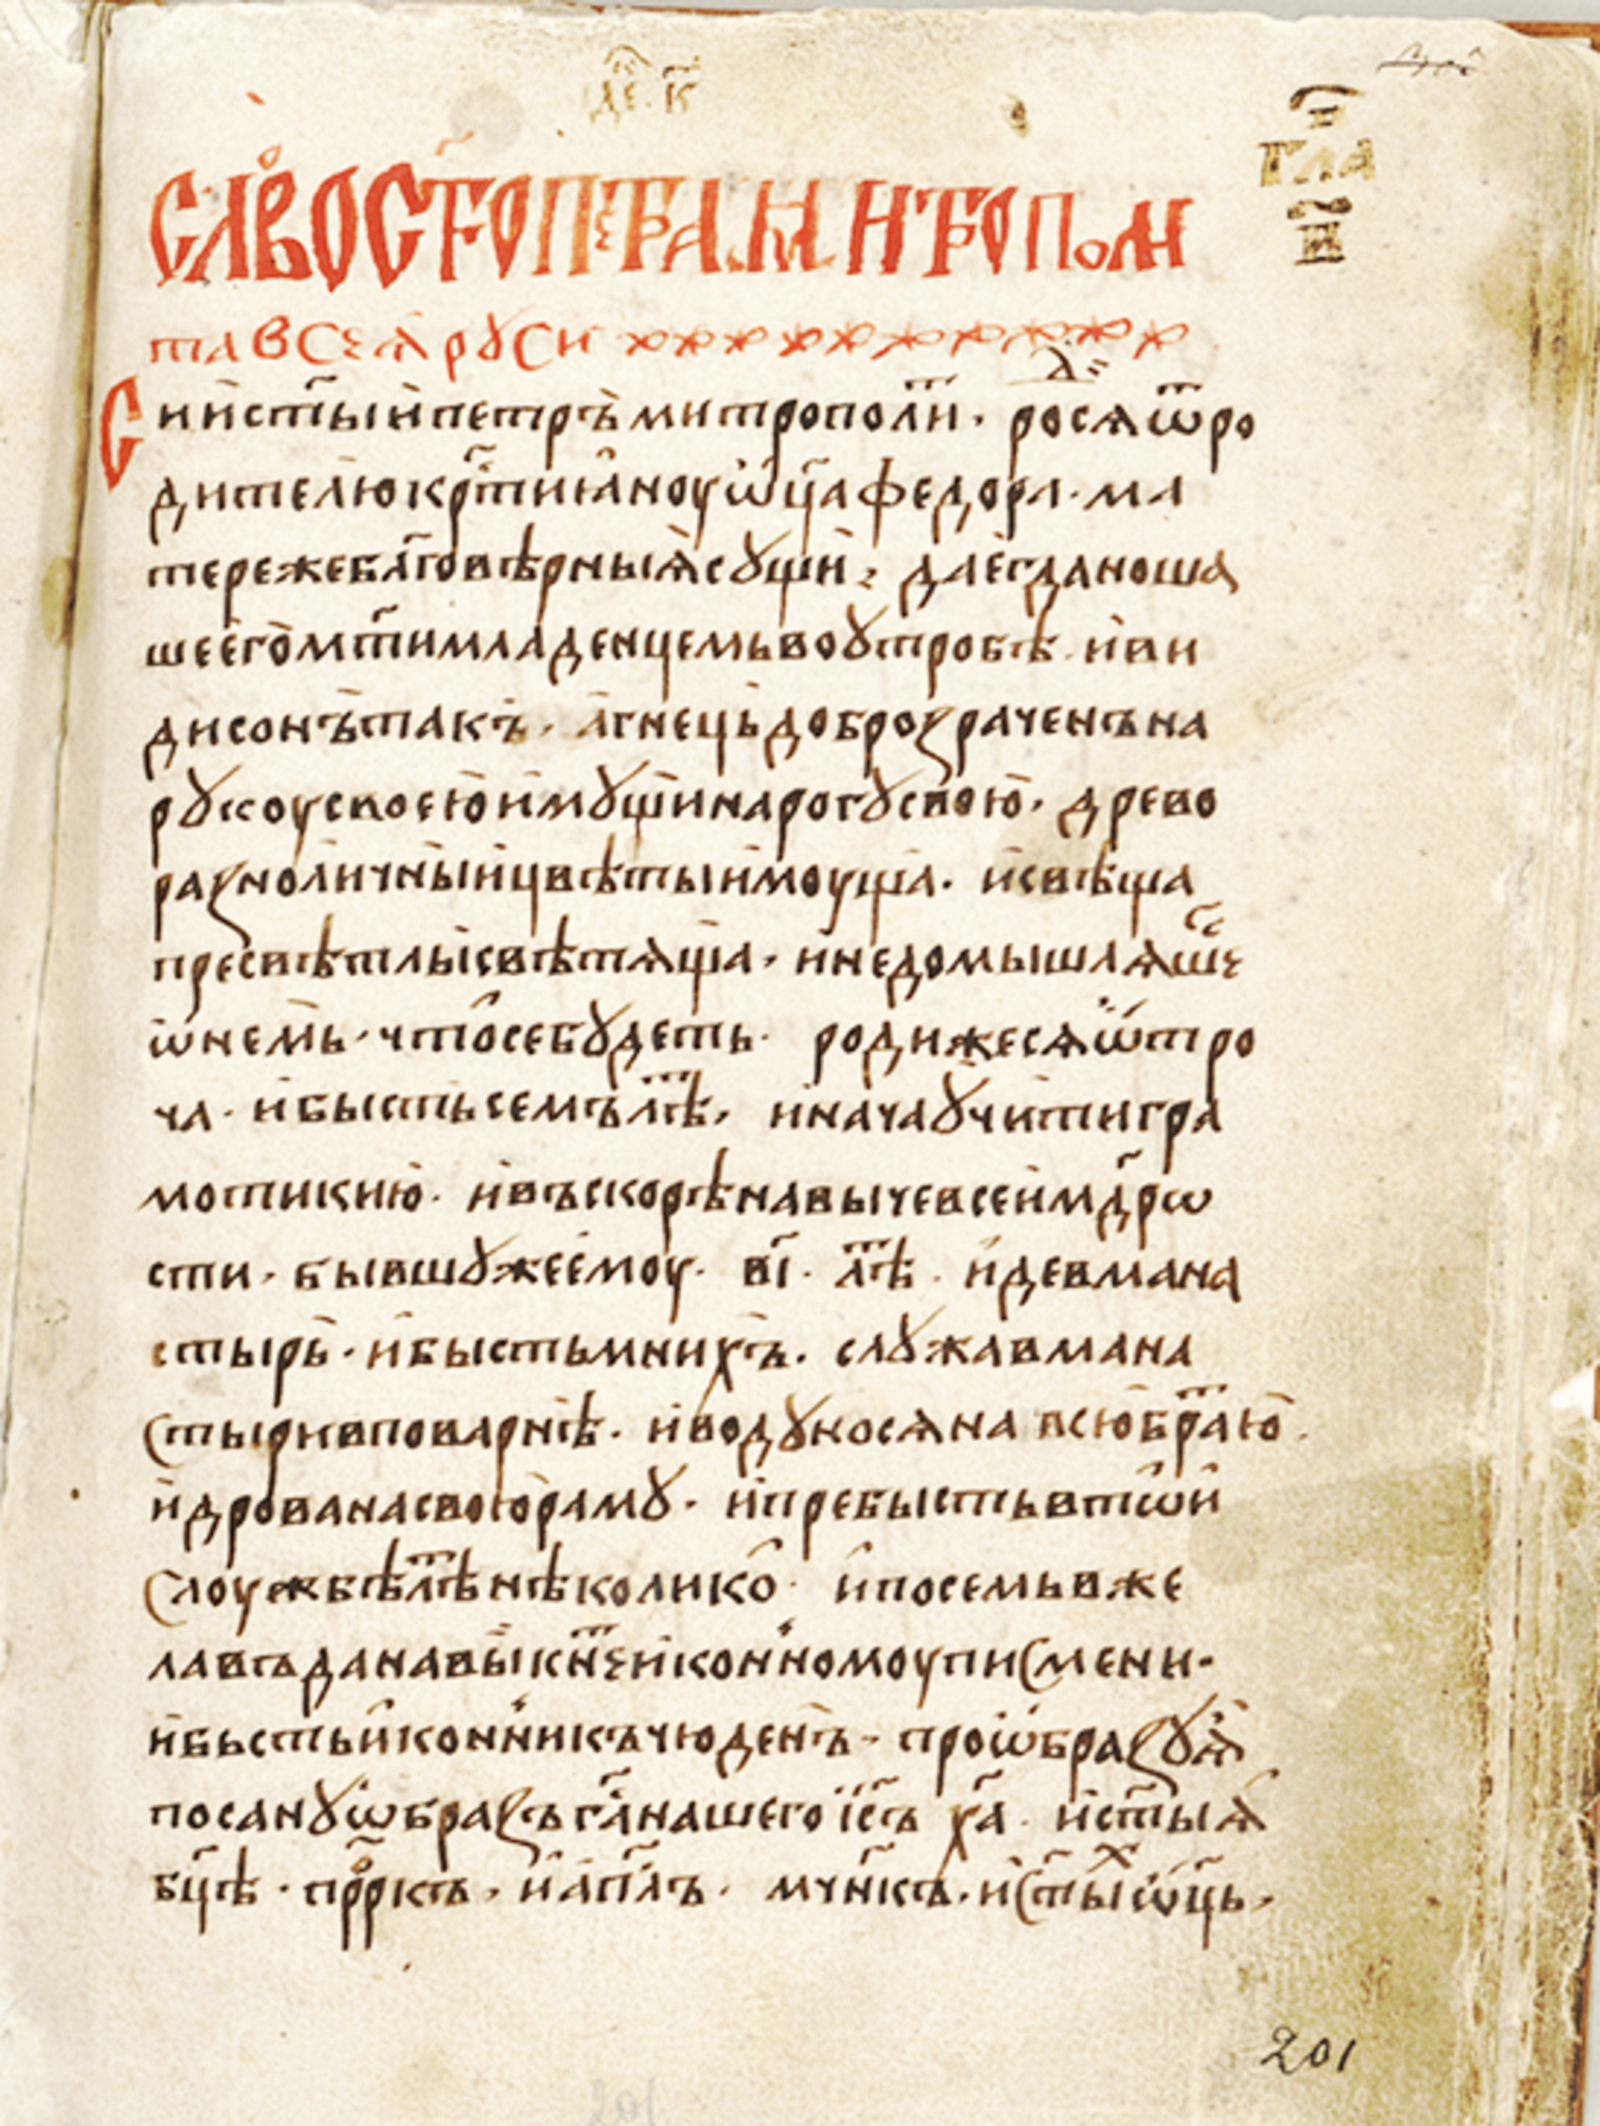 де҃. к҃
гла
н҃
Сло́во ст҃го петра митропол̾и
та всеѧ рꙋси
Сии ст҃ыи петръ митрополи҃т. родисѧ ѿ ро
дителю кр҃тиꙗноу ѿц҃а федора. ма
тереже бл҃говѣрныѧ сꙋщи: да егда ноша
ше его мт҃и младенцемь во ꙋтробѣ. и ви
ди сонъ такъ. агнець доброзраченъ на
рꙋкоу своею имꙋщи на рогꙋ свою. древо
разноличныи цвѣты имоуща. и свѣща
пресвѣтлы свѣтѧща. и недомышлѧшесѧ
ѡ немь. что се бꙋдеть. родижесѧ ѡтро
ча. и бысть семъ лѣт. и нача ꙋчити гра
мотикию. и въскорѣ навыче всеи мдрѡ
сти. бывшꙋже емоу. в҃і. лѣт. иде в мана
стырь. и бысть мнихъ. слꙋжа в мана
стыри в поварнѣ. и водꙋ носѧ на всю братію.
и дрова на свою рамꙋ. и пребысть в тѡи
слоужбѣ лѣт нѣколико. и посемь вже
лавъ да навыкнет иконномоу писмени.
и бысть иконникъ чюденъ. проѡбразꙋѧ
по санꙋ ѡбразъ г҃а нашего іс҃ъ х҃а. и ст҃ыѧ
бц҃ѣ. прр҃къ. и ап҃лъ. мч҃нкъ. и ст҃ых ѡц҃ь.
201